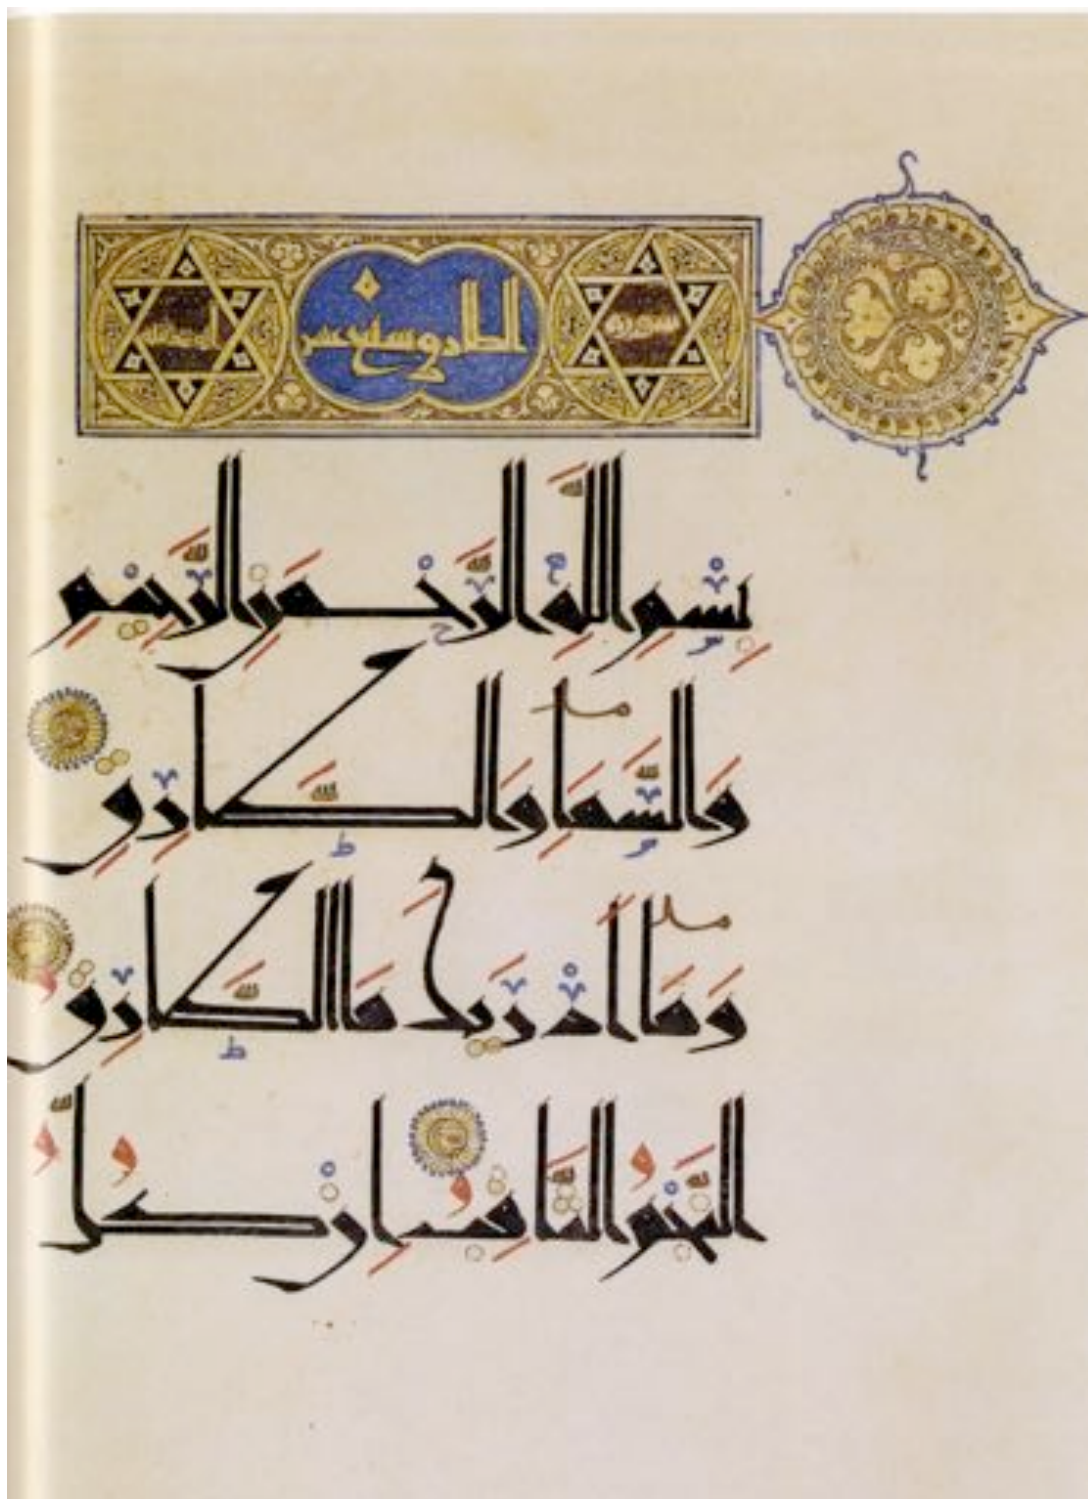 سورة الطارق
بِسْمِ اللهِ الرَّحْمَنِ الرَّحِيمِ
وَالسَّمَاءِ وَالطَّارِقِ
وَمَا أَدْرَيكَ مَا الطَّارِقُ
النَّجْمُ الثَّاقِبُ اِنْ كُلُّ